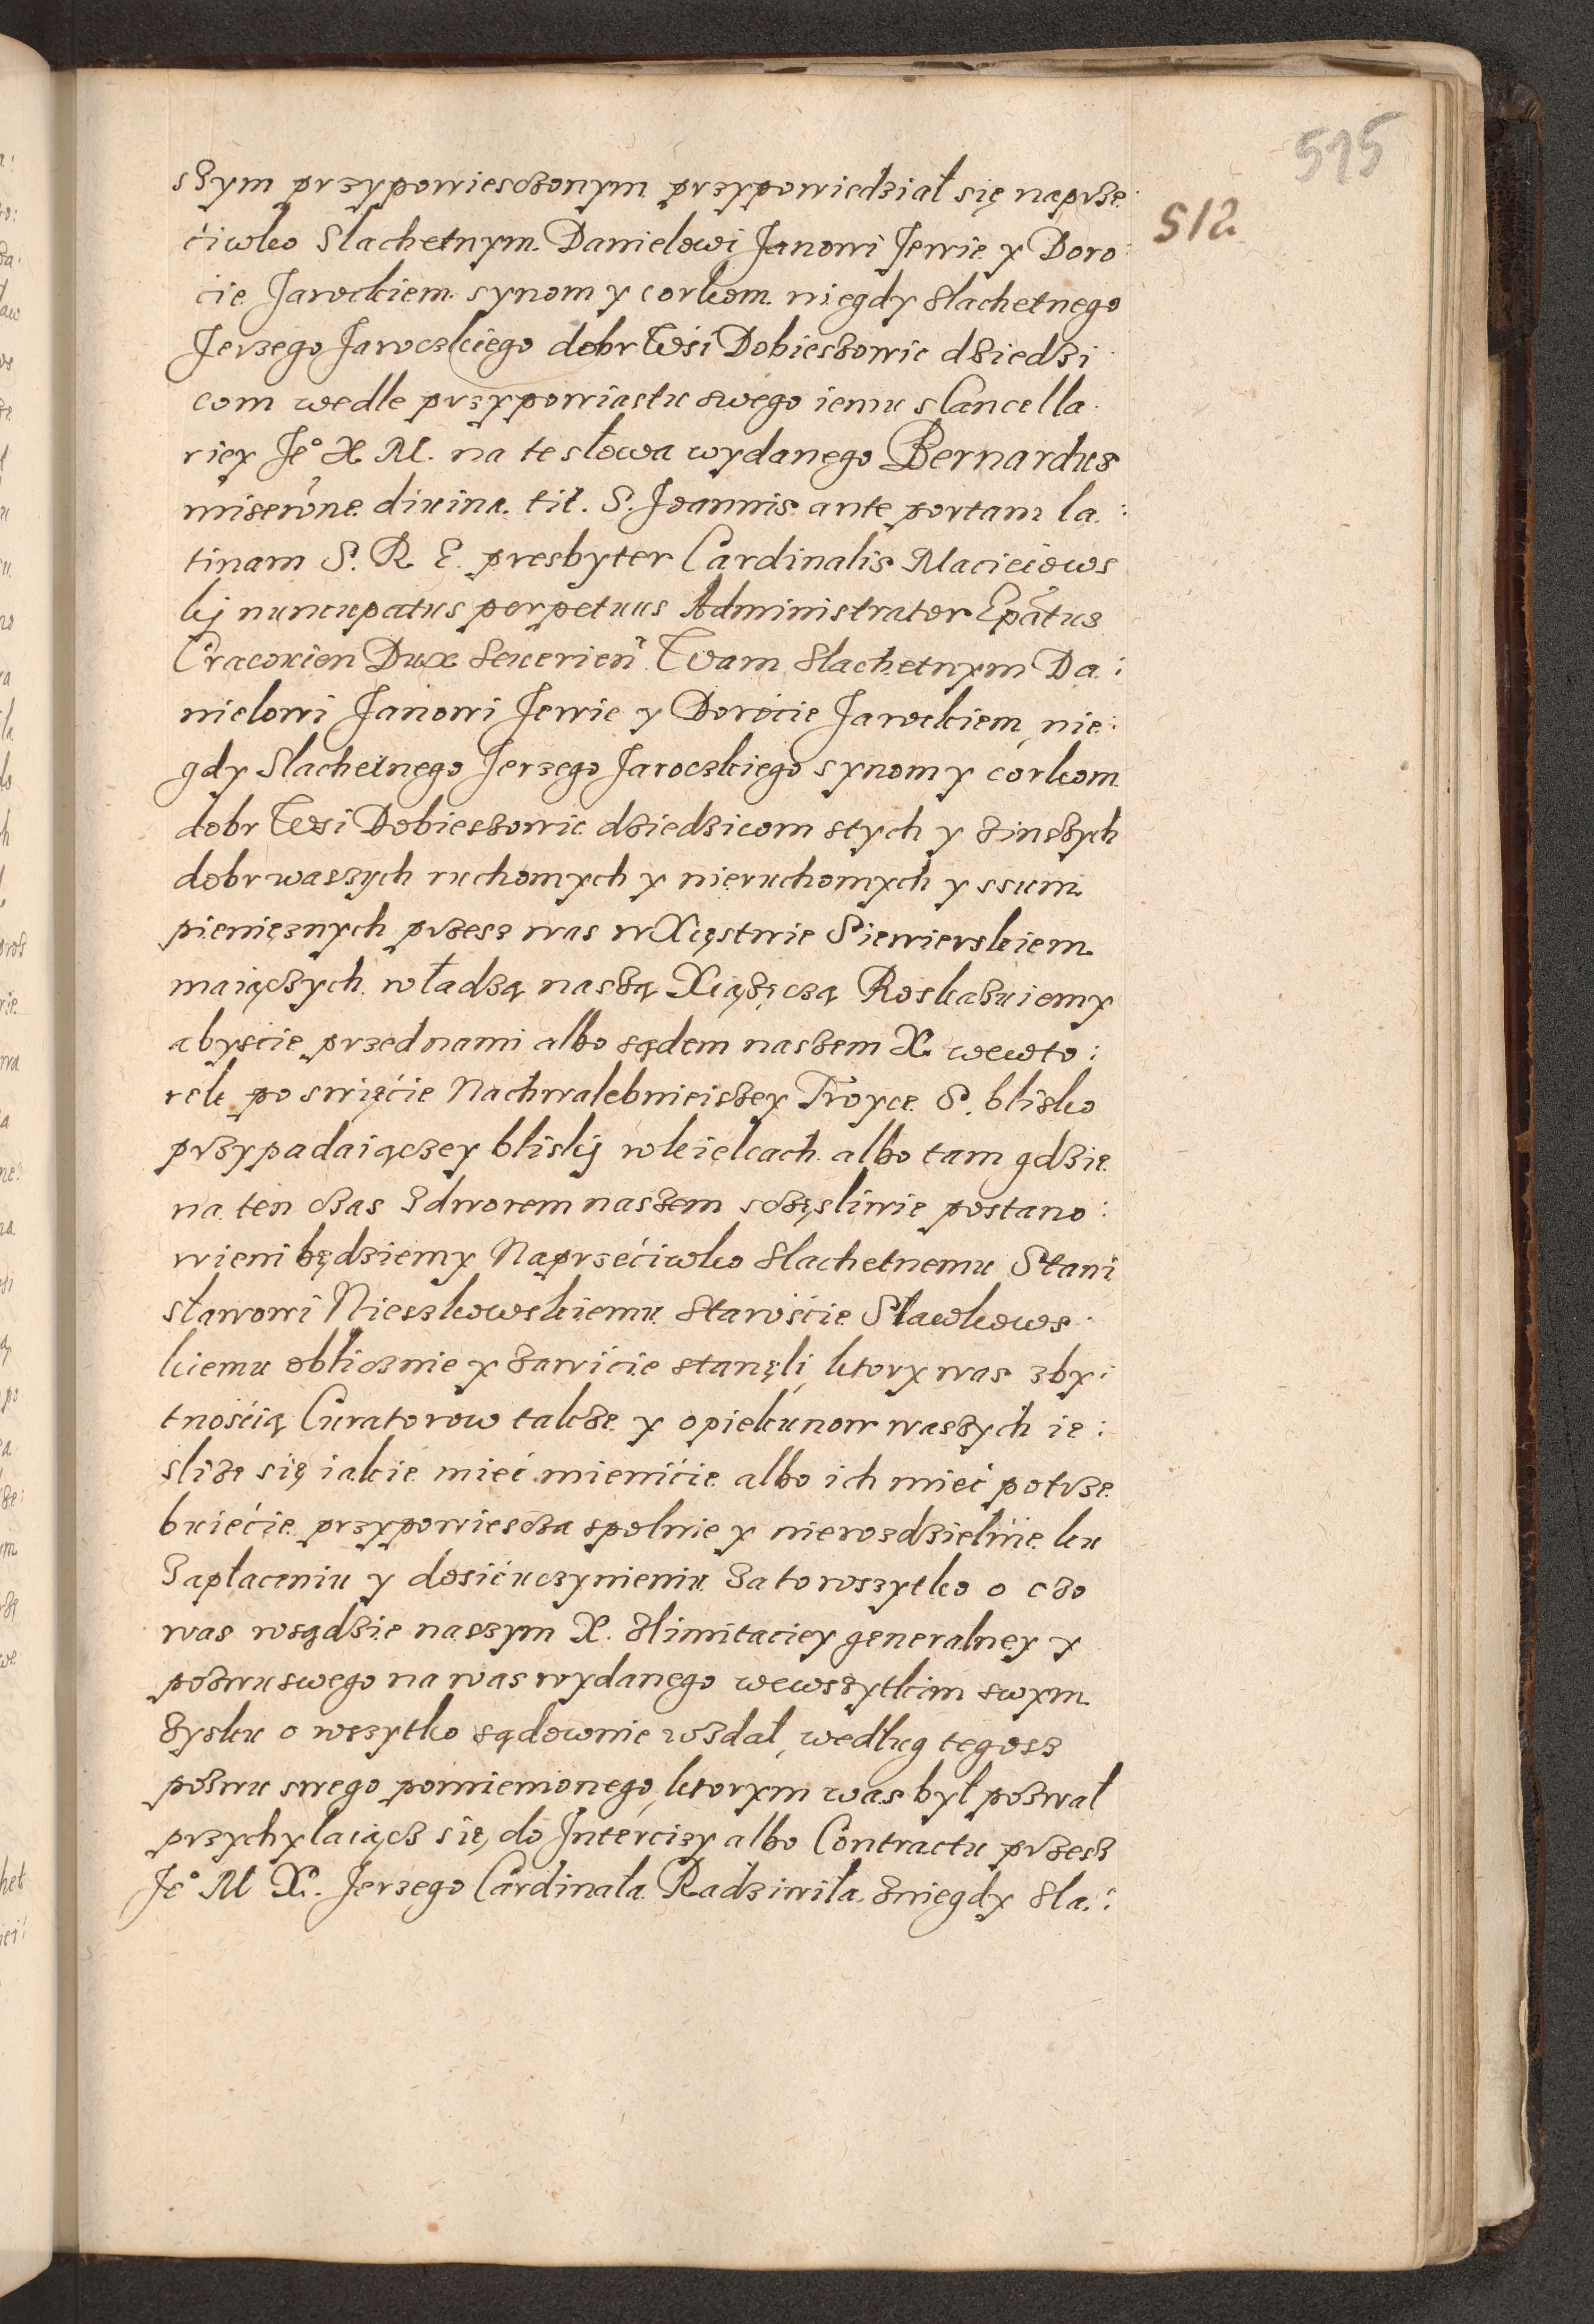 515
512
szym przypowiesczonym przypowiedział się naprze:
ciwko Slachetnym Danielowi Janowi Jewie y Doro:
cie Jarockiem synom y corkom niegdy slachetnego
Jerzego Jaroczkiego dobr Wsi Dobieszowic dziedzi
com wedle przypowiastu swego iemu s Cancella
riey Jeº X M. na te słowa wydanego Bernardus
miserõne diuina tit. S. Joannis ante portam la:
tinam S. R. E. presbyter Cardinalis Macieiows
kj nuncupatus perpetuus Administrator Epãtus
Cracouien Dux Seuerień Wam slachetnym Da:
nielowi Janowi Jewie y Dorocie Jarockiem, nie:
gdy Slachetnego Jerzego Jaroczkiego synom y corkom
dobr Wsi Dobieszowic dziedzicom stych y zinszych
dobr waszych ruchomych y nieruchomych y ssum
pieniężnych przesz was w Xięstwie Siewierskiem
maiączych władzą naszą Xiążęczą Roskazuiemy
abyście przed nami albo sądem naszem X. wewto:
rek po swięcie Nachwalebnieiszey Troyce S. blisko
przypadaiączey bliskj wkielcach albo tam gdzie
na ten czas zdworem naszem sczęsliwie postano:
wieni będziemy Naprzeciwko slachetnemu Stani
sławowi Nieszkowskiemu staroście Sławkows
kiemu oblicznie y zawicie stanęli, ktory was zby:
tnością Curatorow takze y opiekunow waszych ie:
slize się iakie mieć mienicie albo ich mieć potrze
buiećie przypowiescza spolnie y nierozdzielnie ku
zapłaceniu y dosićuczynieniu zato wszytko o czo
was wsądzie naszym X. slimitaciey generalney y
pozwu swego na was wydanego wewszytkim swym
zysku o wszytko sądownie wzdał, według tegosz
pozwu swego pomienionego, ktorym was był pozwał
przychylaiącz się do Intercizy albo Contractu przesz
Jeº M X. Jerzego Cardinała Radziwiła zniegdy sla: